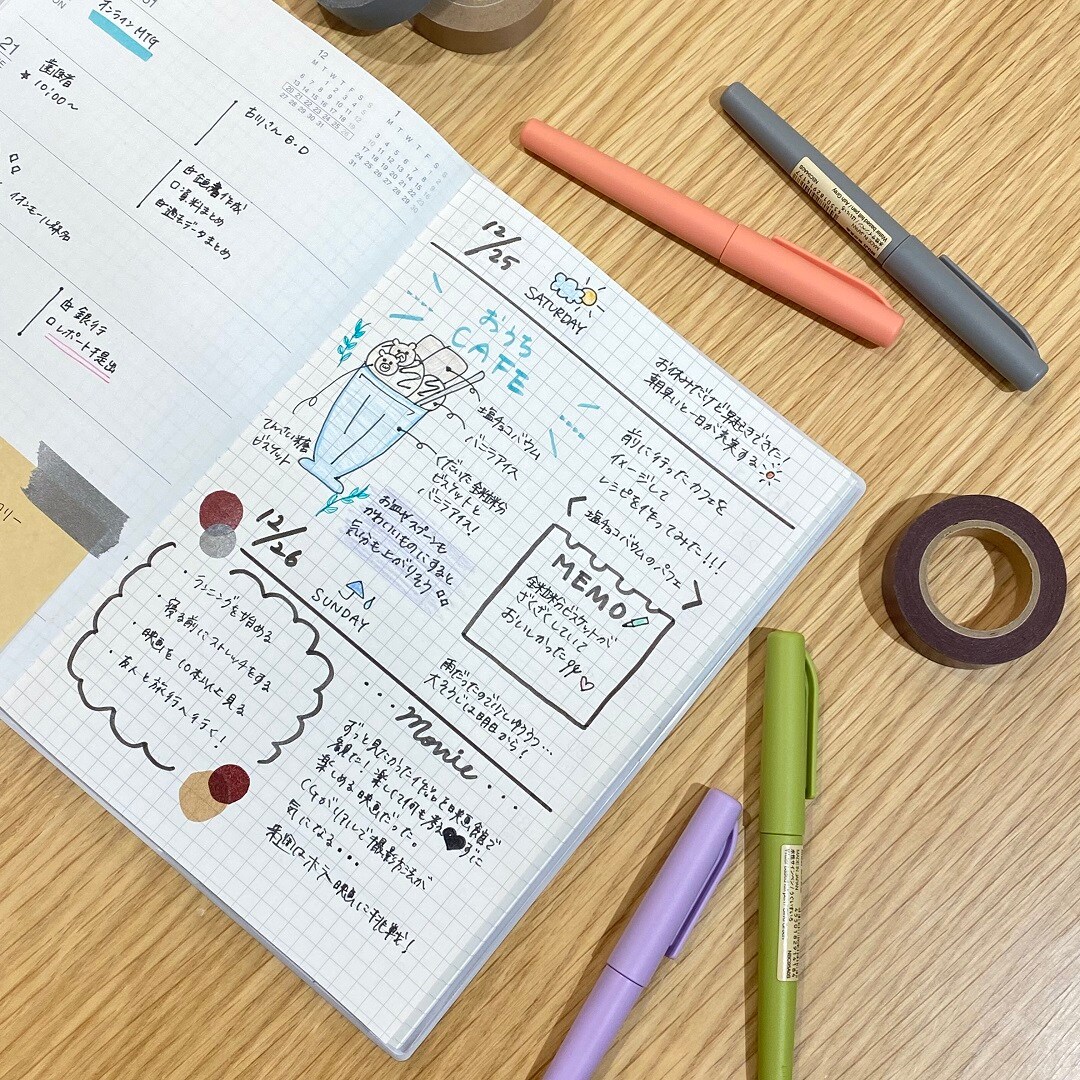 オンラインMTG
21
歯医者
10:00〜
吉川さん B・D
企画書作成
資料まとめ
過去データまとめ
イオンモール
銀行
レポート提出
12
M T W T F S S
1
M T W T F S S
12/25
SATURDAY
おうち
CAFE
塩チョコバウム
バニラアイス
くだいた全粒粉
ビスケットと
バニラアイス!
てんさい糖
ビスケット
お皿やスプーンも
かわいいものにすると
気分も上がりそう
お休みだけど早起きできた!
朝早いと一日が充実する
前に行ったカフェを
イメージして
レシピを作ってみた!!!
塩チョコバウムのパフェ
MEMO
全粒粉ビスケットが
ざくざくしていて
おいしかったゆ
12/26
SUNDAY
雨だったので少しゆううつ…
大そうじは明日から!
・ランニングを始める
・寝る前にストレッチをする
・映画を10本以上見る
・友人と旅行へ行く!
・・・Movie・・・
ずっと見たかった作品を映画館で
観た!楽しくて何も考えずに
楽しめる映画だった。
CGがリアルで撮影方法が
気になる・・・
来週はホラー映画に挑戦!